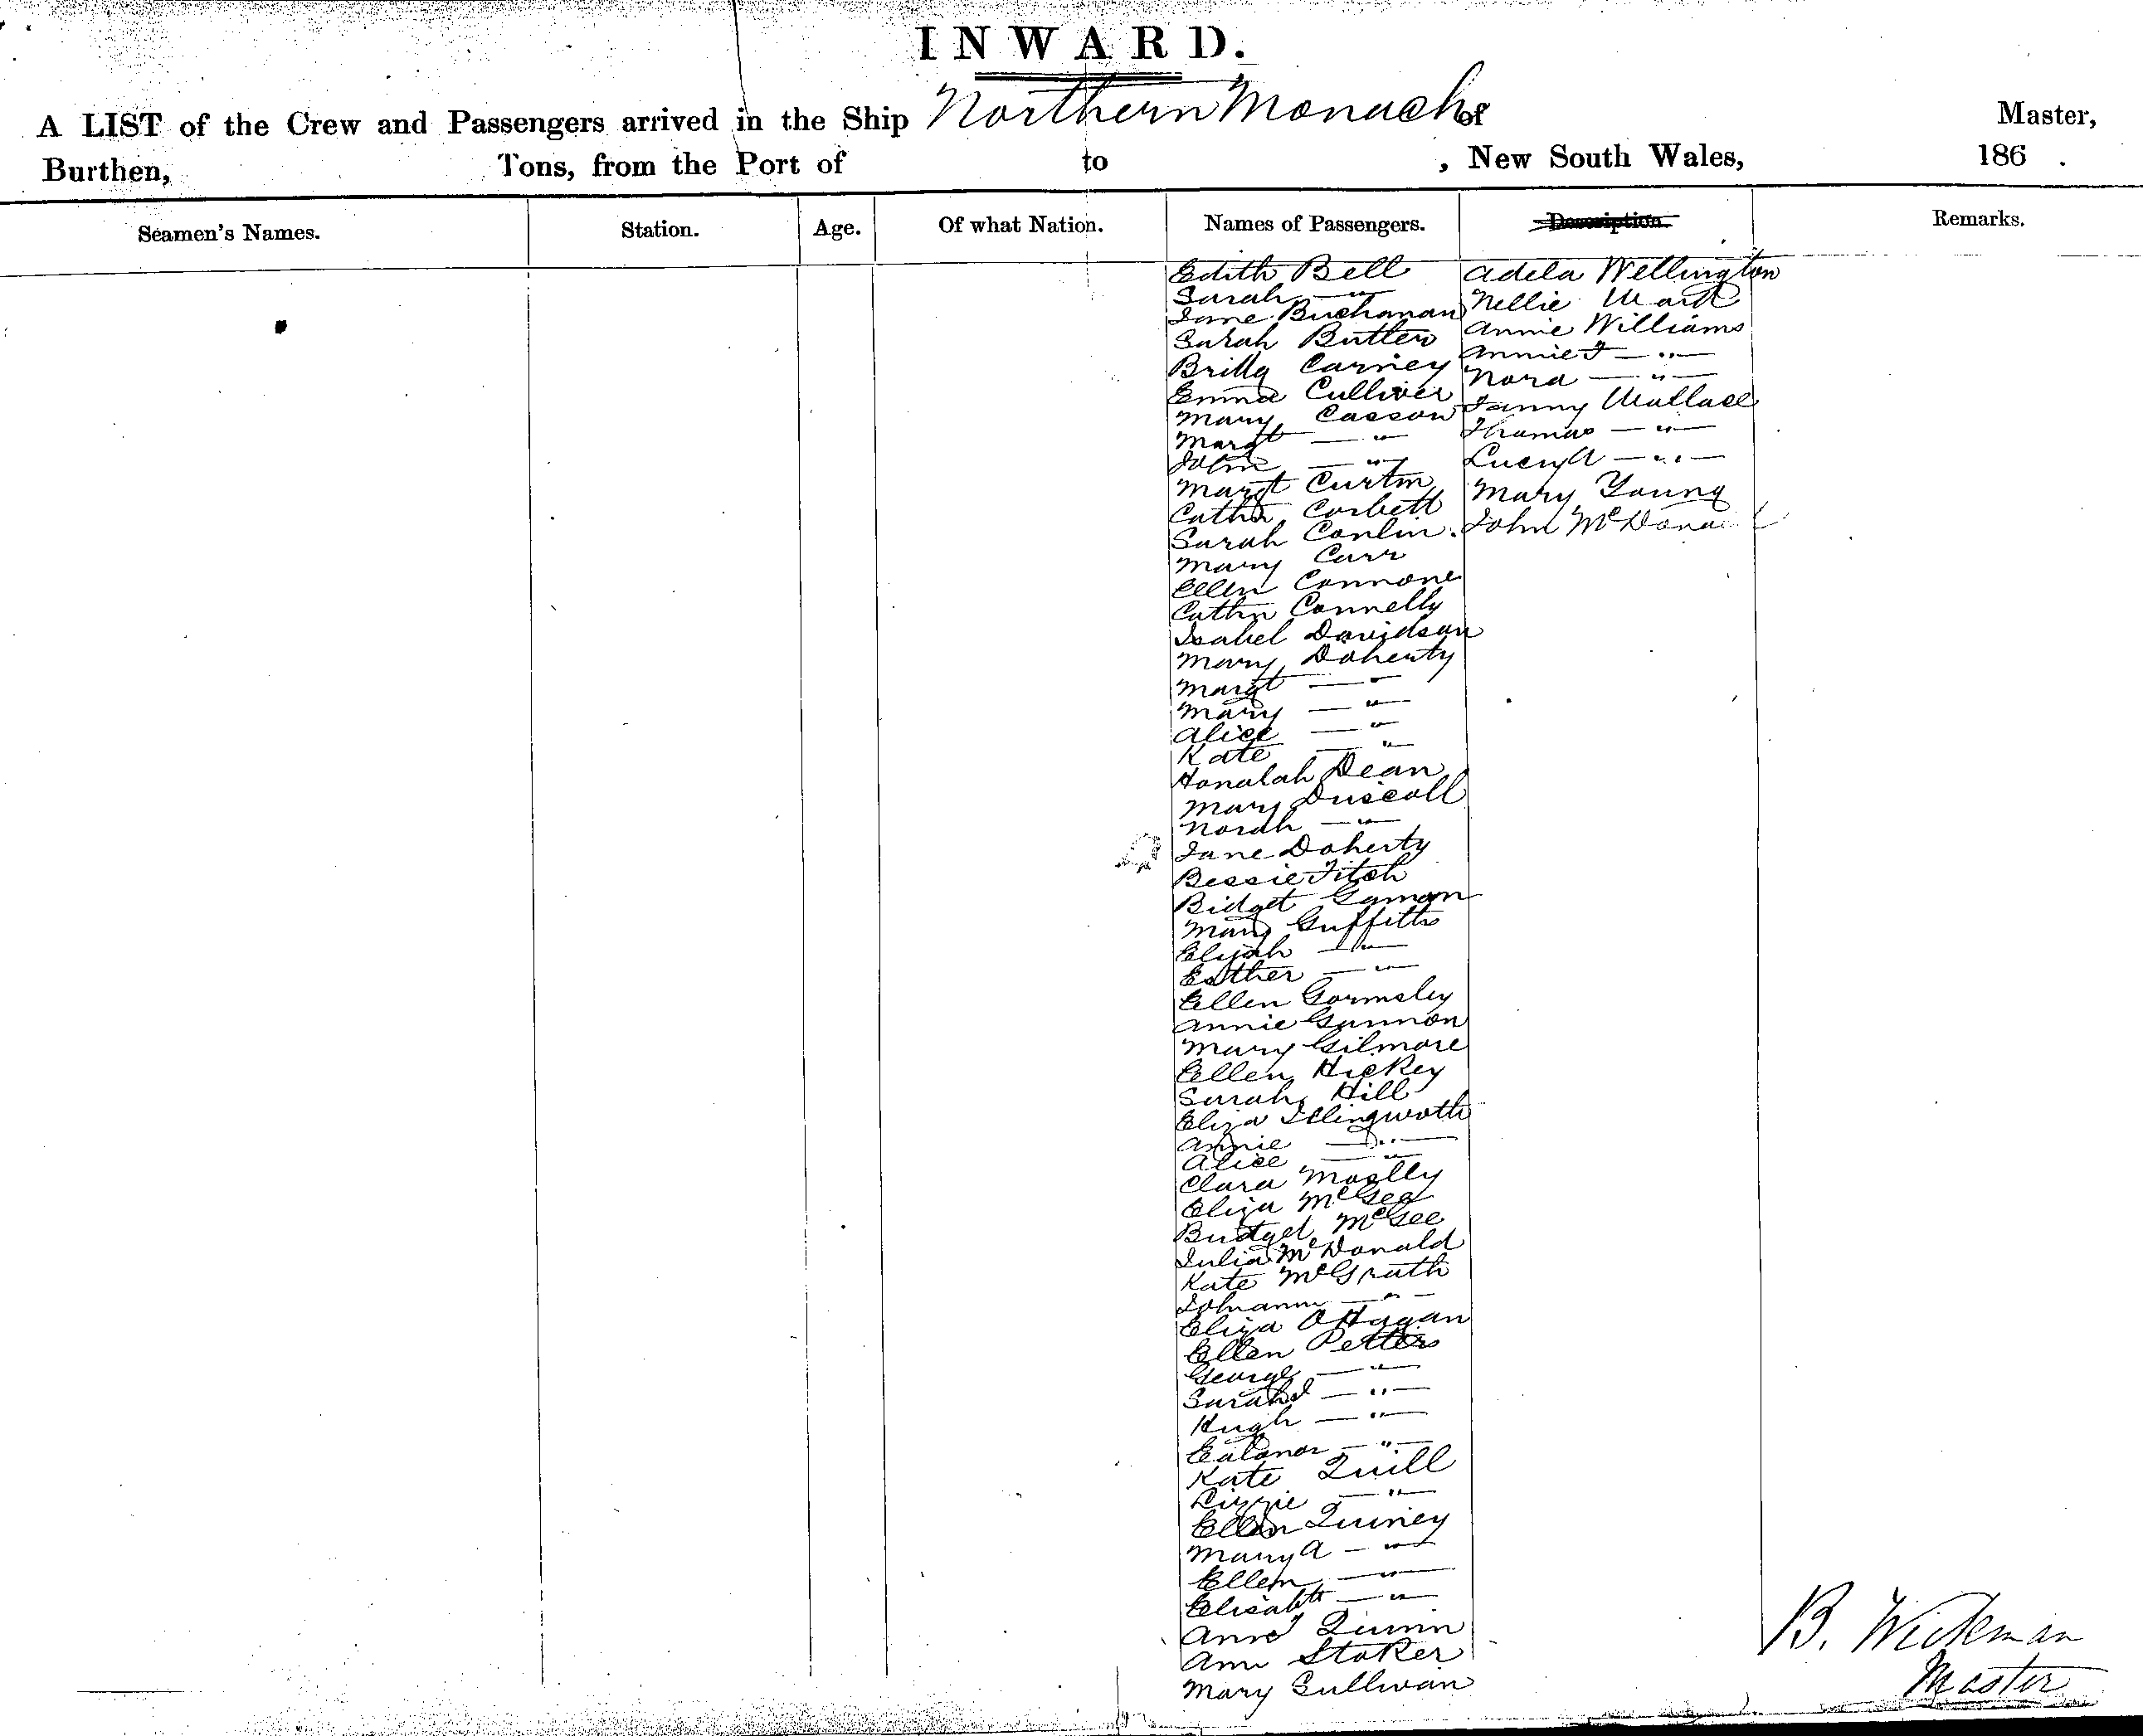 INWARD.
A LIST of the Crew and Passengers arrived in the Ship Northern Monach of Master,
Burthen, Tons, from the Port of to , New South Wales, 186 .
Seamen's Names. Station. Age. Of what Nation. Names of Passengers. Description. Remarks.
Edith Bell
Sarah — " —
Jane Buchanan
Sarah Butler
Bridg Carney
Emma Culliver
Mary Casson
Margt — " —
John — " —
Margt Curtin
Cathn Corbett
Sarah Conlin.
Mary Carr
Ellen Connone
Cathn Connelly
Isabel Davidson
Mary Doherty
Margt — " —
Mary — " —
Alice — " —
Kate — " —
Honalah Dean
Mary Driscoll
Norah — " —
Jane Doherty
Bessie Fitch
Bidget Gamon
Mary Griffitts
Elijah — " —
Esther — " —
Ellen Gormsley
Annie Gunnon
Mary Gilmore
Ellen Hickey
Sarah Hill
Eliza Illingwoth
Annie — " —
Alice — " —
Clara
Eliza McGee
Bridget McGee
Julia McDonald
Kate McGrath
Johanna — " —
Eliza O Hagan
Ellen Petters
George — " —
Sarah J — " —
Hugh — " —
Ealanor — " —
Kate Quill
Lizzie — " —
Ellen Quiney
Mary A — " —
Ellen — " —
Elisabth — " —
Ann Quinn
Ann Stoker
Mary Sullivan
Adela Wellington
Nellie Ward
Annie Williams
Annie J — " —
Nora — " —
Fanny Wallace
Thomas — " —
Lucy A — " —
Mary Young
John McDona
B. Wickman
Master